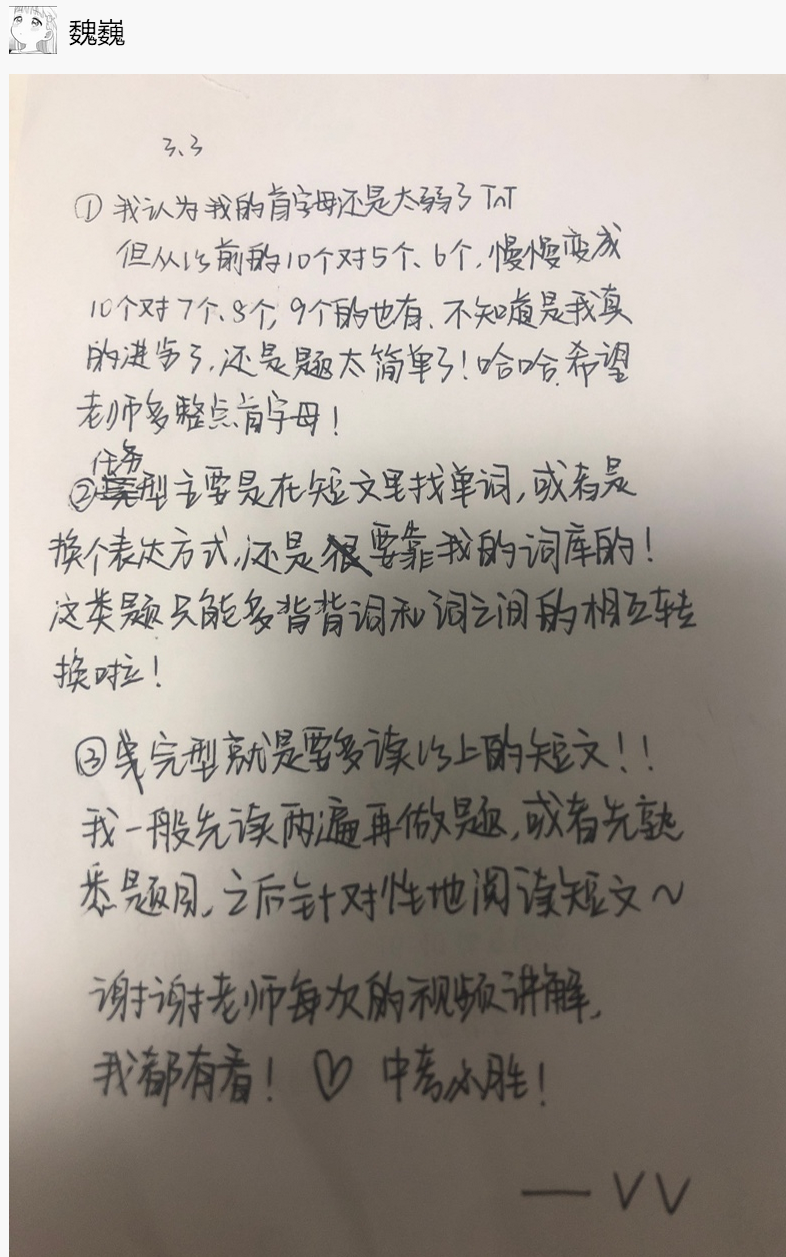 魏巍
3、3
① 我认为我的首字母还是太弱了 TnT
但从以前的10个对5个、6个,慢慢变成
10个对7个、8个,9个的也有、不知道是我真
的进步了,还是题太简单了!哈哈.希望
老师多整点首字母!
任务
②型主要是在短文里找单词,或者是
换个表达方式,还是要靠我的词库的!
这类题只能多背背词和词之间的相互转
换啦!
③完型就是要多读以上的短文!!
我一般先读两遍再做题,或者先熟
悉题目,之后针对性地阅读短文~
谢谢老师每次的视频讲解,
我都有看!♡ 中考必胜!
— VV